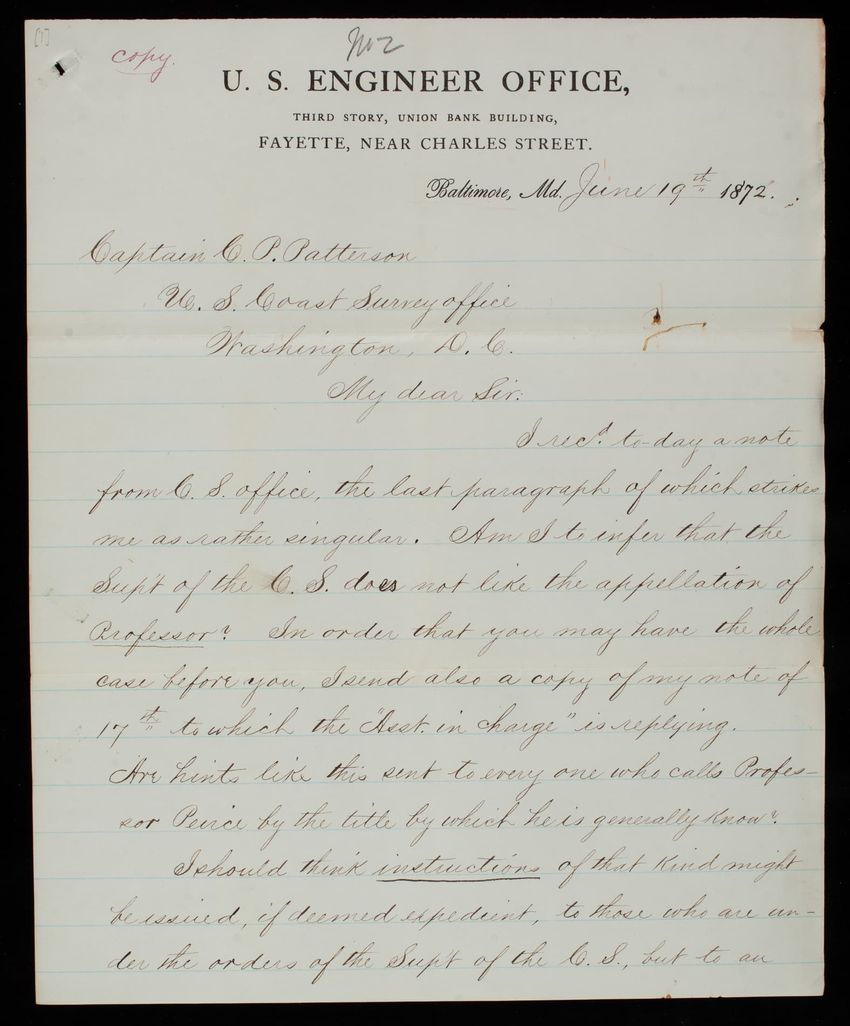 [1]
copy.
No 2
U. S. ENGINEER OFFICE,
THIRD STORY, UNION BANK BUILDING,
FAYETTE, NEAR CHARLES STREET.
Baltimore, Md. June 19th 1872.
Captain C. P. Patterson
U. S. Coast Survey office
Washington, D. C.
My dear Sir:
I recd. to-day a note
from C. S. office, the last paragraph of which strikes
me as rather singular. Am I to infer that the
Supt of the C. S. does not like the appellation of
Professor? In order that you may have the whole
case before you, I send also a copy of my note of
17th to which the "Asst. in charge" is replying.
Are hints like this sent to every one who calls Profes-
sor Peirce by the title by which he is generally know?
I should think instructions of that kind might
be issued, if deemed expedient, to those who are un-
der the orders of the Supt of the C. S., but to an